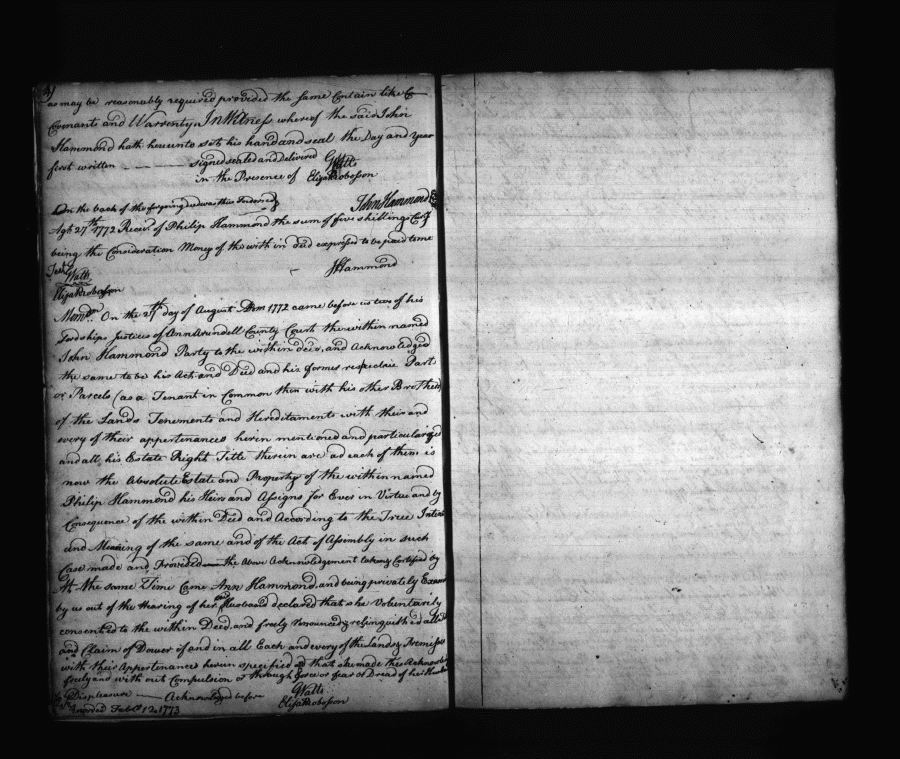 as may be reasonably required provided the same Contain like Co
Covenants and Warrenty In Witness whereof the said John
Hammond hath hereunto sets his hand and seal the Day and Year
first written signed sealed and Delivered G Watts
in the Presence of Elijah Robosson
On the back of the forgoing deed was thus Indorsed
John Hammond
Agt. 27th 1772 Recd. of Philip Hammond the sum of five shillings Curry
being the Consideration Money of the with in deed expressed to be paid to me
Test Watts
J Hammond
Elijah Robosson
Memdm. On the 27th day of August Dom 1772 came before us two of his
Lordships Justices of Ann Arundell County Court the within named
John Hammond Party to the within deed, and Acknowledged
the same to be his Act and Deed and his former respective Part
or Parcels (as a Tenant in Common then with his other Brothers
of the Lands Tenements and Hereditaments with their and
every of their appertenances herein mentioned and particularized
and all his Estate Right Title therein are ad each of them is
now the Absolute Estate and Property of the within named
Philip Hammond his Heirs and Assigns for Ever in Virtue and by
Consequence of the within Deed and According to the True Intent
and Meaning of the same and of the Act of Assembly in such
Case made and Provided the Above Acknowledgement taken & Certified by
At the same Time Came Ann Hammond, and being privately Exam
by us out of the hearing of her Husband declared that she Voluntarily
consented to the within Deed, and freely renounced & relinquished all
and Claim of Dower of and in all Each and every of the Lands & Premises
with their Appertenances herein specified & that she made this Acknow
freely and with out Compulsion or through force or fear of Dread of her
Displeasure Acknowledged before G Watts
Recorded Feb. 12. 1773 Elijah Robosson